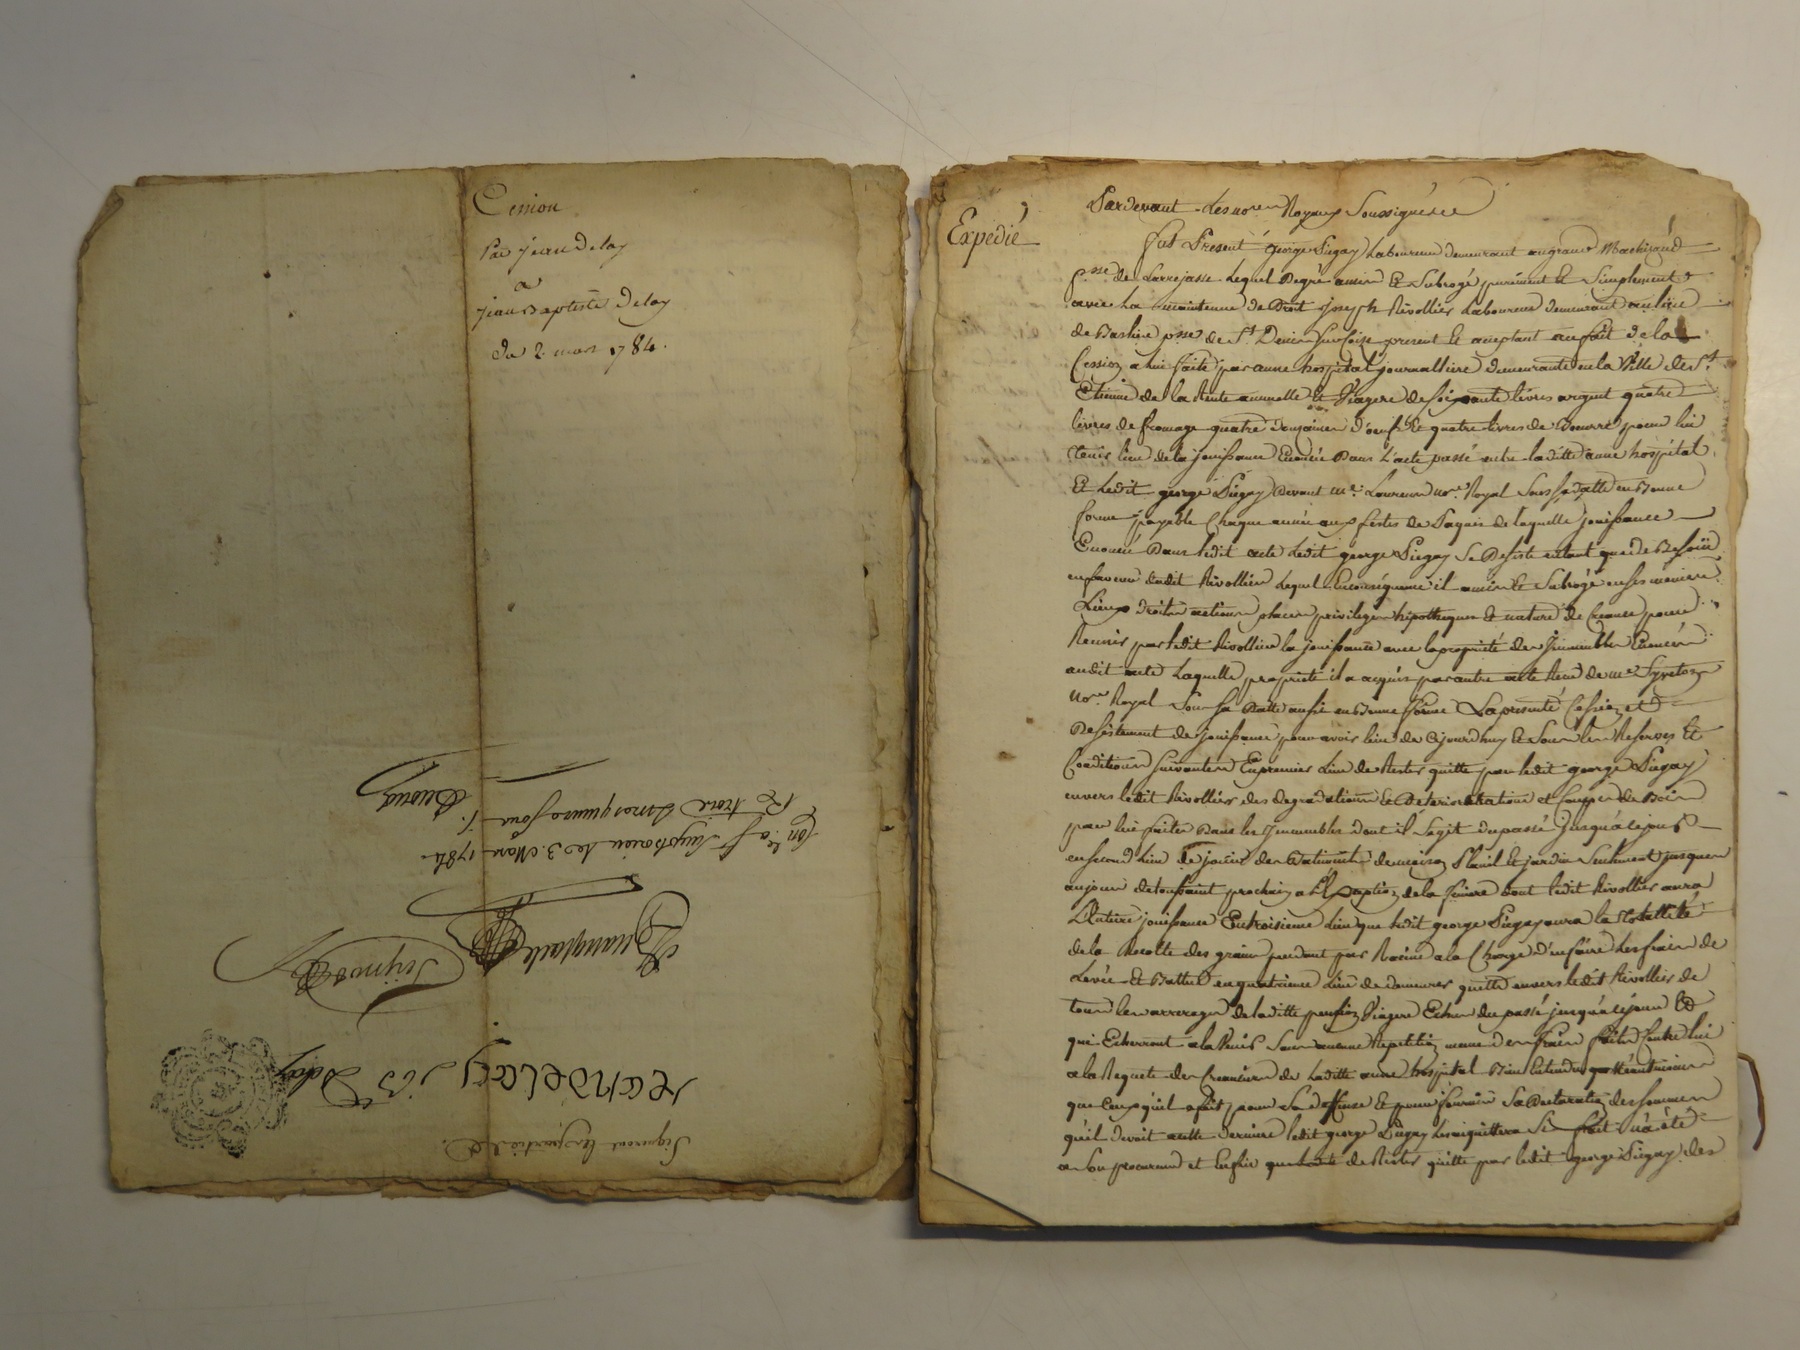 Cession
Par jean delay
a
jean Baptiste delay
du 2. mars 1784.
Signeront les parties
jean Delay j b Delay
le 3. Mars 1784.
Expedié
Pardevant Les no.res Royaux Soussignés
fut Present george Piegay Laboureur demeurant au grand
p.sse de Larrajasse Lequel Degré a mis & Subrogé purement & Simplement
avec La maintenue de Droit joseph Rivollier Laboureur demeurant au lieu
de p.sse de S.t Denis Sur Coise present & aceptant au fait de la
Cession a lui faite par anne hospital journalliere demeurante en la Ville de S.t
Etienne de la Rente annuelle & Viagere de soixante livres argent quatre
livres de fromage quatre douzaines d'oeufs & quatre livres de Beurre pour lui
tenir lieu de la jouissance Enoncée Dans L'acte passé entre laditte anne hospital
Et Ledit george Piegay Devant m.e no.re Royal Sous Sa datte en Bonne
forme payable Chaque année aux festes de Paques de laquelle jouissance
Enoncée Dans ledit acte Ledit george Piegay Se Desiste entant que de Besoin
en faveur dudit Rivollier Lequel En consequence il a mis & Subrogé en ses memes
Lieux droits actions places privileges hipotheques & nature de Creance pour
Reunir par ledit Rivollier la jouissance avec la propriété des Immeubles Enoncés
audit acte Laquelle propriété il a acquis par autre acte Recu de m.e
No.re Royal Sous Sa Datte aussi en Bonne forme La presente Cession et
Desistement de jouissance pour avoir lieu de Cejourd'huy & Sous les Reserves &
Conditions Suivantes En premier Lieu de Rester quitte par ledit george Piegay
envers ledit Rivollier des degradations & Deteriorations et Coupes de Bois
par lui faites Dans les Immeubles dont il S'agit du passé jusqu'à ce jour
en Second Lieu de jouir des Batiments de maison & jardin Seulement jusques
au jour de toussaint prochain a L'Exception de la dont ledit Rivollier aura
L'Entiere jouissance En troisieme Lieu que ledit george Piegay aura la totallité
de la Recolte des grains pendant par Racine a la Charge d'en faire les frais de
Levée & Battue en quatrieme Lieu de demeurer quitte envers ledit Rivollier de
tous les arrerages de laditte pension Viagere Echus du passé jusqu'à ce jour &
qui Echerront a la Sans aucune Repetition meme des frais faits Contre lui
a la Requete des Creanciers de Laditte anne hospital Bien Entendu
que Ceux qu'il a fait pour Sa deffense & pour fournir Sa Declaration des Sommes
qu'il devoit a cette derniere ledit george Piegay les aquittera Si fait n'a été
a Son procureur et Enfin de Rester quitte par ledit george Piegay des